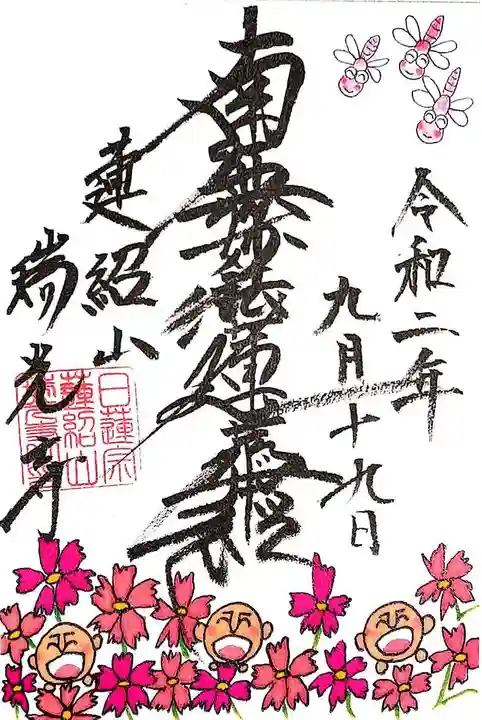 令和二年
九月十九日
南無妙法蓮華経
蓮紹山
瑞光寺
日蓮宗
蓮紹山